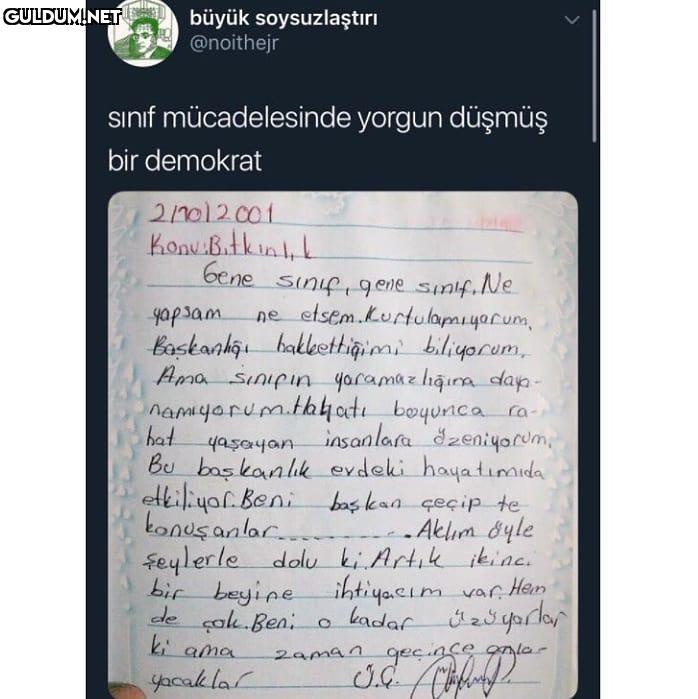 GULDUM.NET
büyük soysuzlaştırı
@noithejr
sınıf mücadelesinde yorgun düşmüş
bir demokrat
2/10/2001
Konu:Bitkinlik
Gene sınıf, gene sınıf. Ne
yapsam ne etsem. Kurtulamıyorum.
Başkanlığı hakkettiğimi biliyorum.
Ama sınıfın yaramazlığına daya-
namıyorum. Hayatı boyunca ra-
hat yaşayan insanlara özeniyorum.
Bu başkanlık evdeki hayatımıda
etkiliyor. Beni başkan seçip te
konuşanlar.............. Aklım öyle
şeylerle dolu ki. Artık ikinci
bir beyine ihtiyacım var. Hem
de çok. Beni o kadar üzüyorlar
ki ama zaman geçince anla-
yacaklar